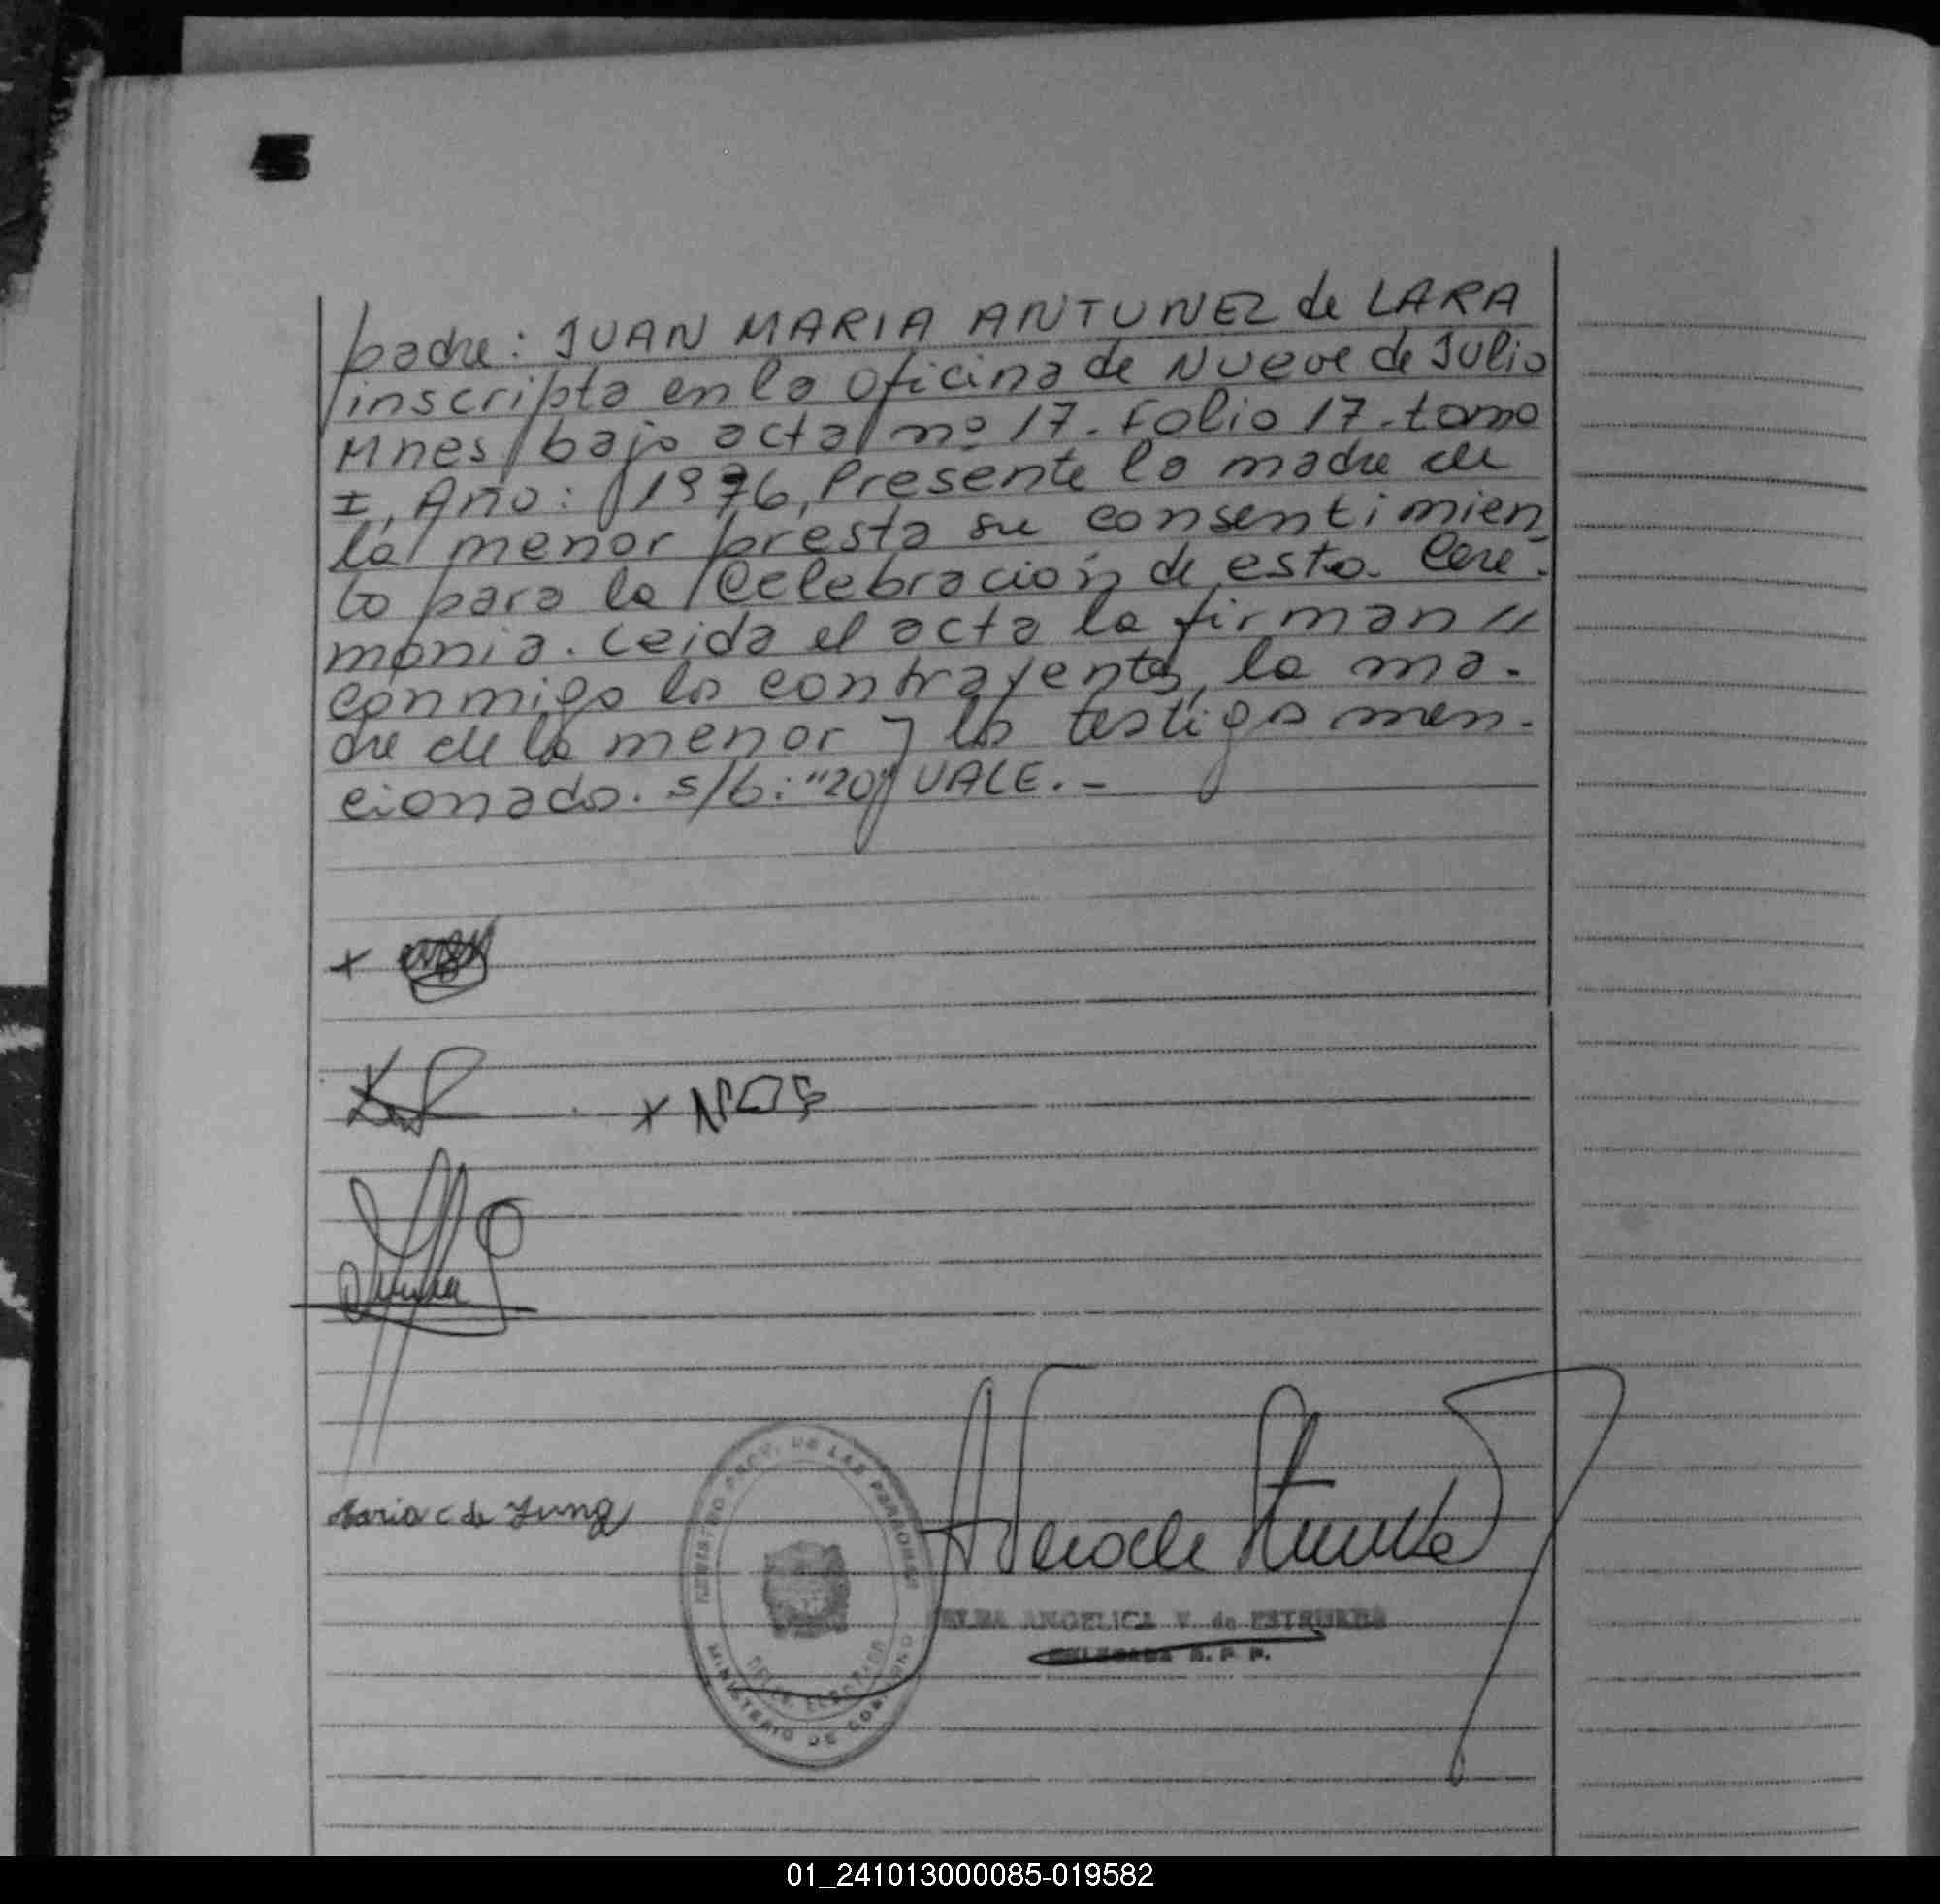 padre: JUAN MARIA ANTUNEZ de LARA
inscripta en la oficina de Nueve de Julio
Mnes bajo acta nº 17. folio 17. tomo
I, Año: 1976, Presente la madre de
la menor presta su consentimien
to para la Celebración de esta Cere-
monia. Leida el acta la firman //
conmigo los contrayentes, la ma-
dre de la menor y los testigos men-
cionados. s/b: "20" VALE. -
Maria C de Jung
REGISTRO PROV. DE LAS PERSONAS
MINISTERIO DE GOBIERNO
ELBA ANGELICA V. de
DELEGADA R. P. P.
01_241013000085-019582